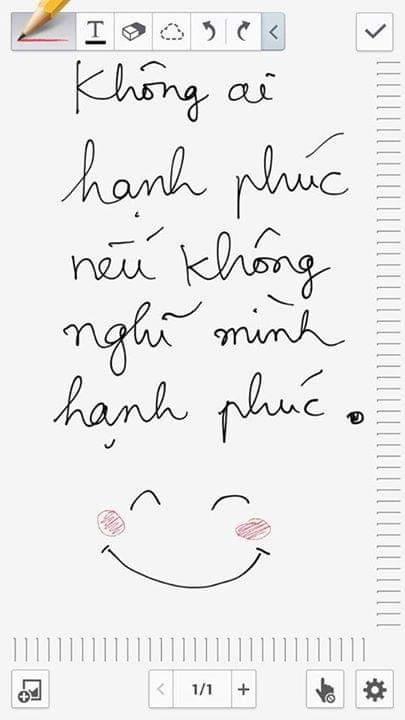 T
Không ai
hạnh phúc
nếu không
nghĩ mình
hạnh phúc.
1/1